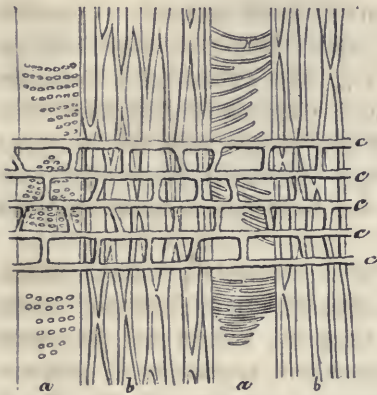 c
c
c
c
c
a b a b